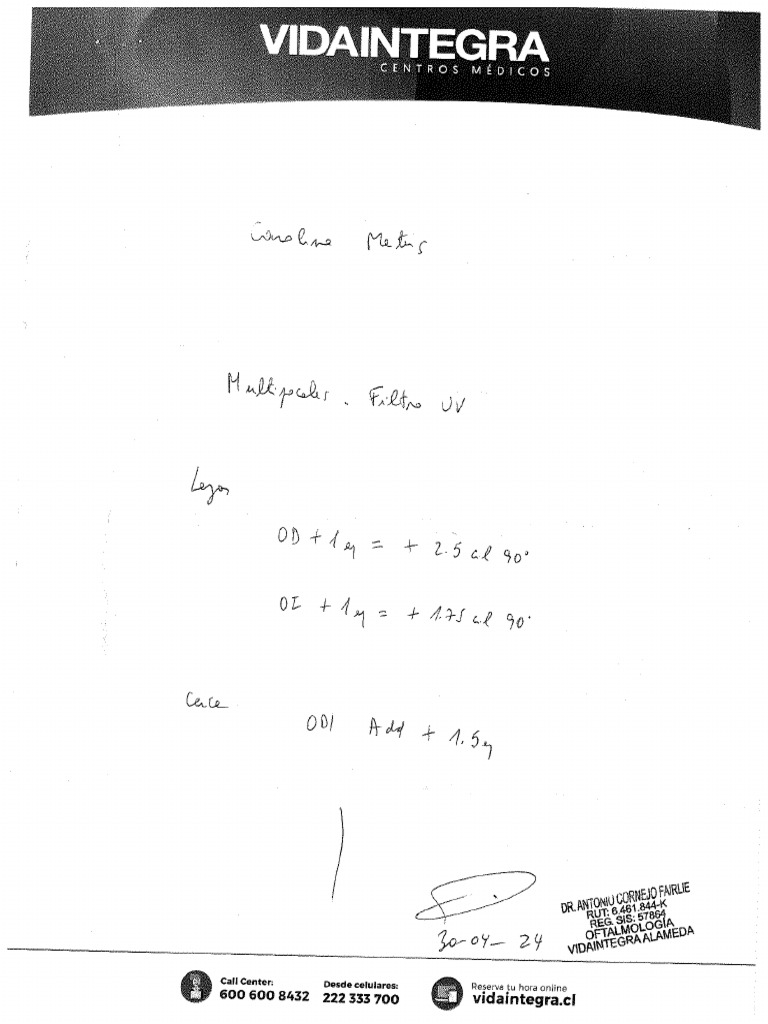 VIDAINTEGRA
CENTROS MÉDICOS
Carolina Metus
Multifocales. Filtro UV
Lejos
OD + 1 ef = + 2.5 al 90°
OI + 1 ef = + 1.75 al 90°
Cerca
ODI Add + 1.5
30-04-24
DR. ANTONIO CORNEJO FAIRLIE
RUT: 6.461.844-K
REG. SIS: 57864
OFTALMOLOGÍA
VIDAINTEGRA ALAMEDA
Call Center:
600 600 8432
Desde celulares:
222 333 700
Reserve tu hora online
vidaintegra.cl